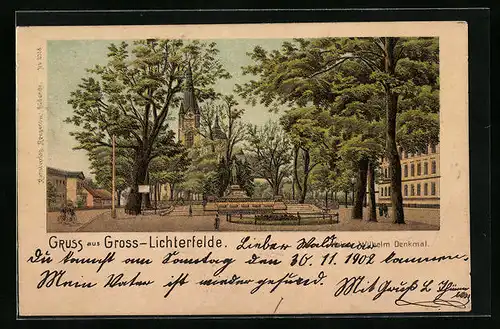 GRUSS aus GROSS-LICHTERFELDE.
Wilhelm Denkmal.
Lieber Waldemar
Du kannst am Sonntag den 30.11.1902 kommen.
Mein Vater ist wieder gesund. Mit Gruß